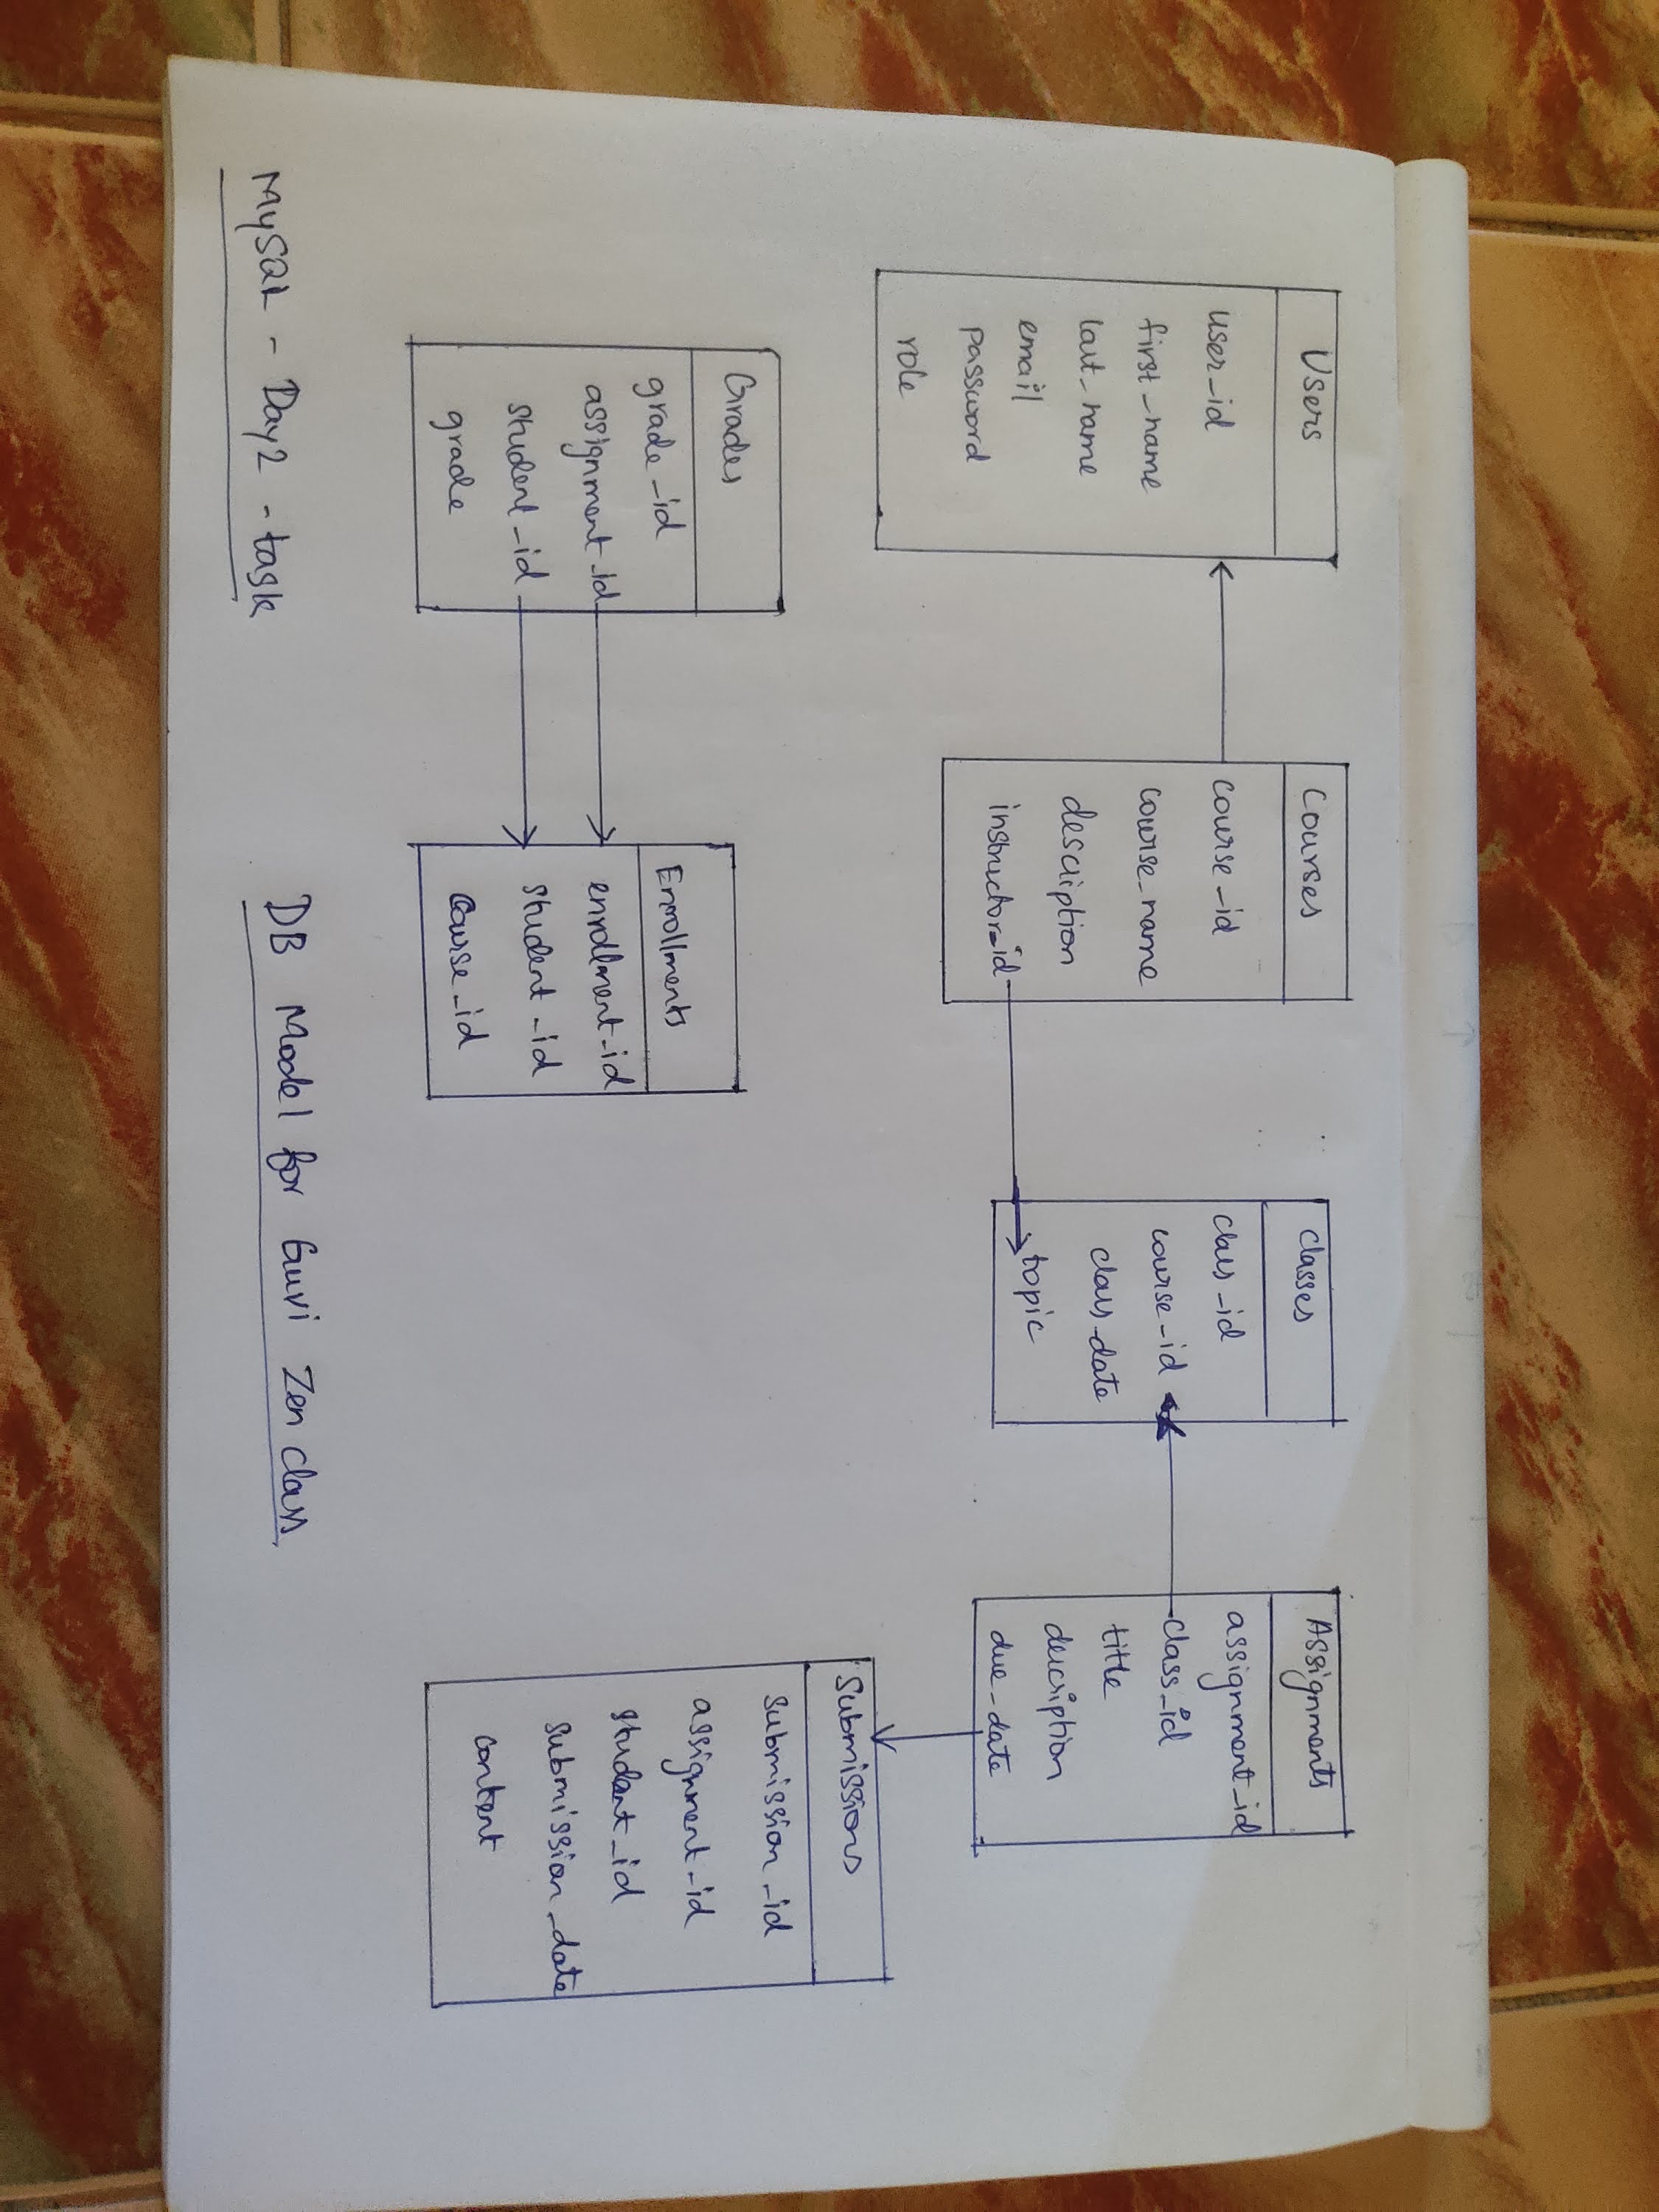 Users
user_id
first_name
last_name
email
password
role
Courses
course_id
course_name
description
instructor_id
Classes
class_id
course_id
class_date
topic
Assignments
assignment_id
class_id
title
description
due_date
Submissions
submission_id
assignment_id
student_id
submission_date
content
Grades
grade_id
assignment_id
student_id
grade
Enrollments
enrollment_id
student_id
Course_id
MySQL - Day2 - task
DB Model for Guvi Zen Class